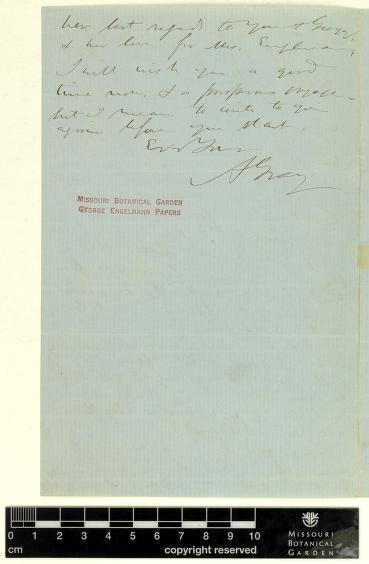 her best regards to you & George,
& her love for Mrs. Engelmann.
I will wish you a good
time now, & a prosperous voyage –
but I mean to write to you
again before you start.
Ever Yours
A Gray
MISSOURI BOTANICAL GARDEN
GEORGE ENGELMANN PAPERS
0 1 2 3 4 5 6 7 8 9 10
cm
copyright reserved
MISSOURI
BOTANICAL
GARDEN